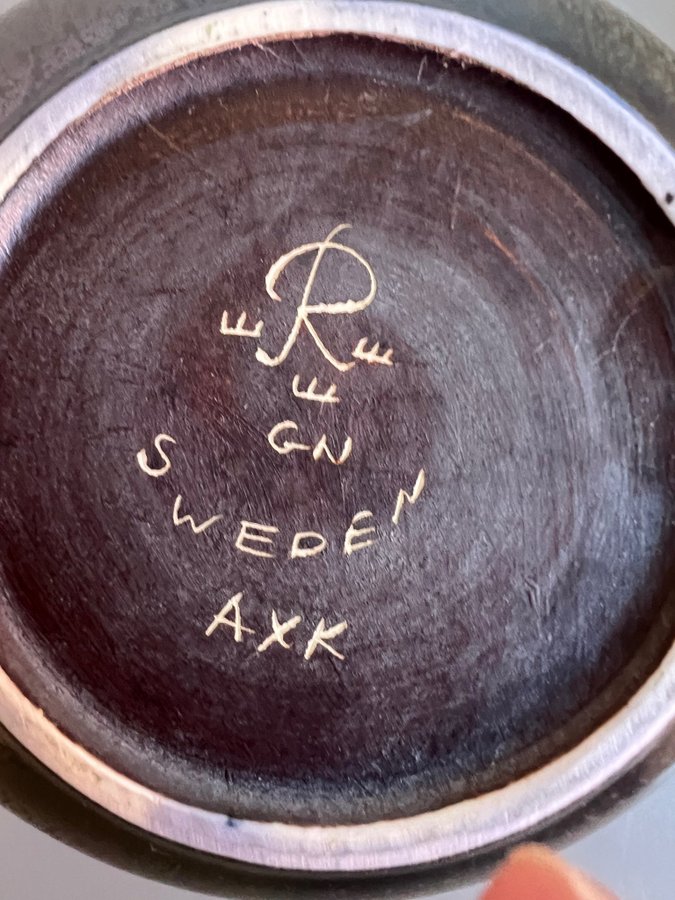 R
E E
E
GN
SWEDEN
AXK